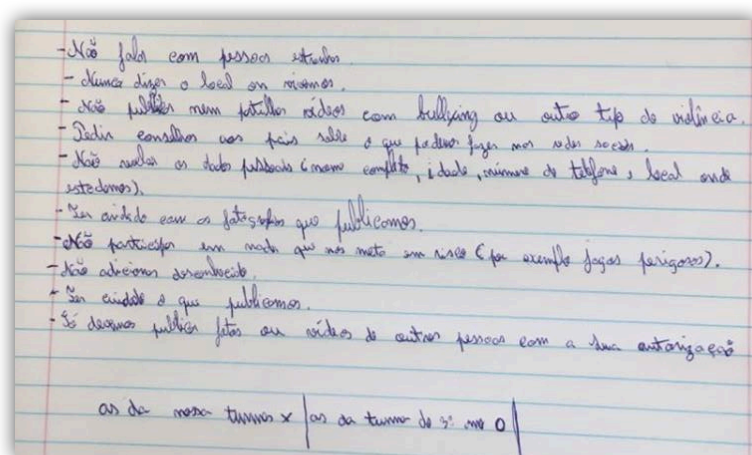 - Não falar com pessoas estranhas.
- Nunca dizer o local on vivemos.
- Não publicar nem partilhar vídeos com bullying ou outro tipo de violência.
- Pedir conselhos aos pais sobre o que podemos fazer nas redes sociais.
- Não revelar os dados pessoais (nome completo, idade, número de telefone, local onde
estudamos).
- Ter cuidado com as fotografias que publicamos.
- Não participar em nada que nos meta em risco (por exemplo jogos perigosos).
- Não adicionar desconhecido.
- Ter cuidado o que publicamos.
- Só devemos publicar fotos ou vídeos de outras pessoas com a sua autorização
as da nossa turma x | as da turma do 3º ano O |